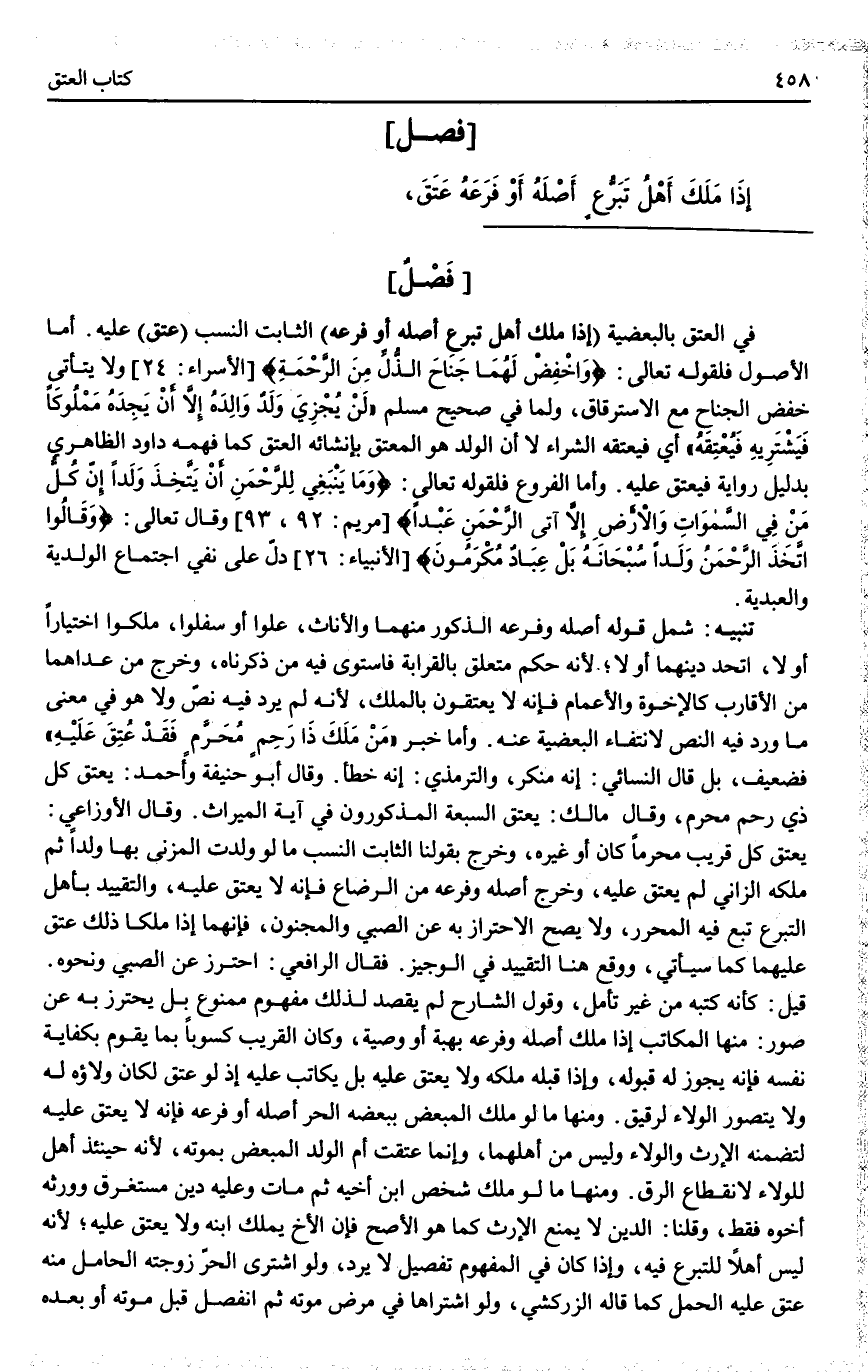 ٤٥٨
كتاب العتق
[فصـل]
إِذَا مَلَكَ أَهْلُ تَبَرُّعٍ أَصْلَهُ أَوْ فَرَعَهُ عَتَقَ،
[ فَصْلٌ]
في العتق بالبعضية (إذا ملك أهل تبرع أصله أو فرعه) الثابت النسب (عتق) عليه. أمـا
الأصـول فلقولـه تعالى: ﴿وَاخْفِضْ لَهُمَـا جَنَاحَ الـذُّلِّ مِنَ الرَّحْمَـةِ﴾ [الأسراء: ٢٤] ولا يتـأتى
خفض الجناح مع الاسترقاق، ولما في صحيح مسلم «لَنْ يُجْزِيَ وَلَدٌ وَالِدَهُ إِلَّا أَنْ يَجِدَهُ مَمْلُوكَاً
فَيَشْتَرِيهِ فَيُعْتِقَهُ» أي فيعتقه الشراء لا أن الولد هو المعتق بإنشائه العتق كما فهمـه داود الظاهـري
بدليل رواية فيعتق عليه. وأما الفروع فلقوله تعالى: ﴿وَمَا يَنْبَغِي لِلرَّحْمَنِ أَنْ يَتَّخِـذَ وَلَداً إِنّ كُـلُّ
مَنْ فِي السَّمٰوَاتِ وَالْأَرْضِ إِلَّا آتى الرَّحْمَنِ عَبْـداً﴾ [مريم: ٩٢ ، ٩٣] وقال تعالى: ﴿وَقَـالُوا
اتَّخَذَ الرَّحْمَنُ وَلَـداً سُبْحَانَـهُ بَلْ عِبَـادٌ مُكْرَمُـونَ﴾ [الأنبياء: ٢٦] دلّ على نفي اجتماع الولـدية
والعبدية.
تنبيـه: شمل قـوله أصله وفـرعه الـذكور منهمـا والأناث، علوا أو سفلوا، ملكـوا اختياراً
أو لا، اتحد دينهما أو لا؛ لأنه حكم متعلق بالقرابة فاستوى فيه من ذكرناه، وخرج من عـداهما
من الأقارب كالإخـوة والأعمام فـإنه لا يعتقـون بالملك، لأنـه لم يرد فيـه نصّ ولا هو في معنى
مـا ورد فيه النص لانتفـاء البعضية عنـه. وأمـا خبـر «مَنْ مَلَكَ ذَا رَحِمٍ مُحَـرَّمٍ فَقَـدْ عُتِقَ عَلَيْـهِ»
فضعيف، بل قال النسائي: إنه منكر، والترمذي: إنه خطأ. وقال أبـو حنيفة وأحمـد: يعتق كل
ذي رحم محرم، وقـال مالـك: يعتق السبعة المـذكورون في آيـة الميراث. وقـال الأوزاعي:
يعتق كل قريب محرماً كان أو غيره، وخرج بقولنا الثابت النسب ما لو ولدت المزنى بهـا ولداً ثم
ملكه الزاني لم يعتق عليه، وخرج أصله وفرعه من الـرضاع فـإنه لا يعتق عليـه، والتقييد بـأهل
التبرع تبع فيه المحرر، ولا يصح الاحتراز به عن الصبي والمجنون، فإنهما إذا ملكـا ذلك عتق
عليهما كما سيـأتي، ووقع هنـا التقييد في الـوجيز. فقـال الرافعي: احتـرز عن الصبي ونحوه.
قيل: كأنه كتبه من غير تأمل، وقول الشارح لم يقصد لـذلك مفهوم ممنوع بـل يحترز بـه عن
صور: منها المكاتب إذا ملك أصله وفرعه بهبة أو وصية، وكان القريب كسوباً بما يقوم بكفايـة
نفسه فإنه يجوز له قبوله، وإذا قبله ملكه ولا يعتق عليه بل يكاتب عليه إذ لو عتق لكان ولاؤه لـه
ولا يتصور الولاء لرقيق. ومنهـا ما لـو ملك المبعض ببعضه الحر أصله أو فرعه فإنه لا يعتق عليـه
لتضمنه الإرث والولاء وليس من أهلهما، وإنما عتقت أم الولد المبعض بموته، لأنه حينئذ أهل
للولاء لانقـطاع الرق. ومنهـا ما لـو ملك شخص ابن أخيه ثم مـات وعليه دين مستغـرق وورثه
أخوه فقط، وقلنا: الدين لا يمنع الإرث كما هو الأصح فإن الأخ يملك ابنه ولا يعتق عليه؛ لأنه
ليس أهلاً للتبرع فيه، وإذا كان في المفهوم تفصيل لا يرد، ولو اشترى الحرّ زوجته الحامل منه
عتق عليه الحمل كما قاله الزركشي، ولو اشتراها في مرض موته ثم انفصل قبل مـوته أو بعـده